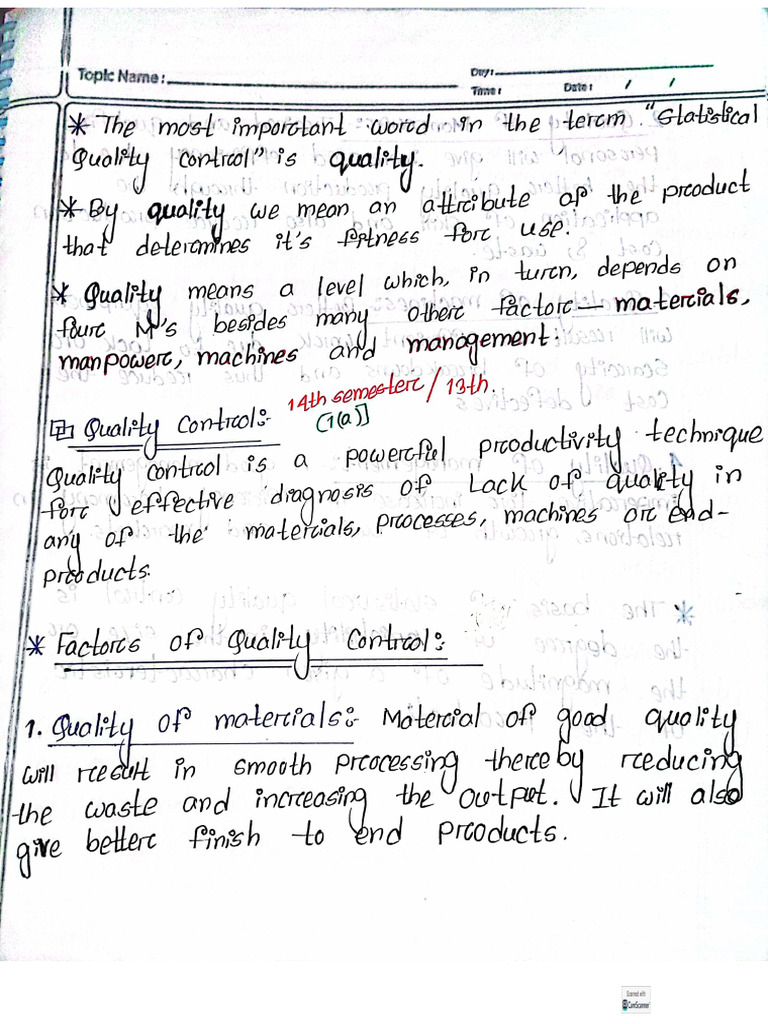 Topic Name :
Day :
Time :
Date : / /
* The most important word in the term "Statistical
Quality Control" is quality.
* By quality we mean an attribute of the product
that determines it's fitness for use.
* Quality means a level which, in turn, depends on
four M's besides many other factor — materials,
manpower, machines and management.
14th semester / 13th.
[1(a)]
Quality Control:-
Quality control is a powerful productivity technique
for effective diagnosis of Lack of quality in
any of the materials, processes, machines or end-
products.
* Factors of Quality Control:-
1. Quality of materials:- Material of good quality
will result in smooth processing thereby reducing
the waste and increasing the output. It will also
give better finish to end products.
Scanned with
CamScanner